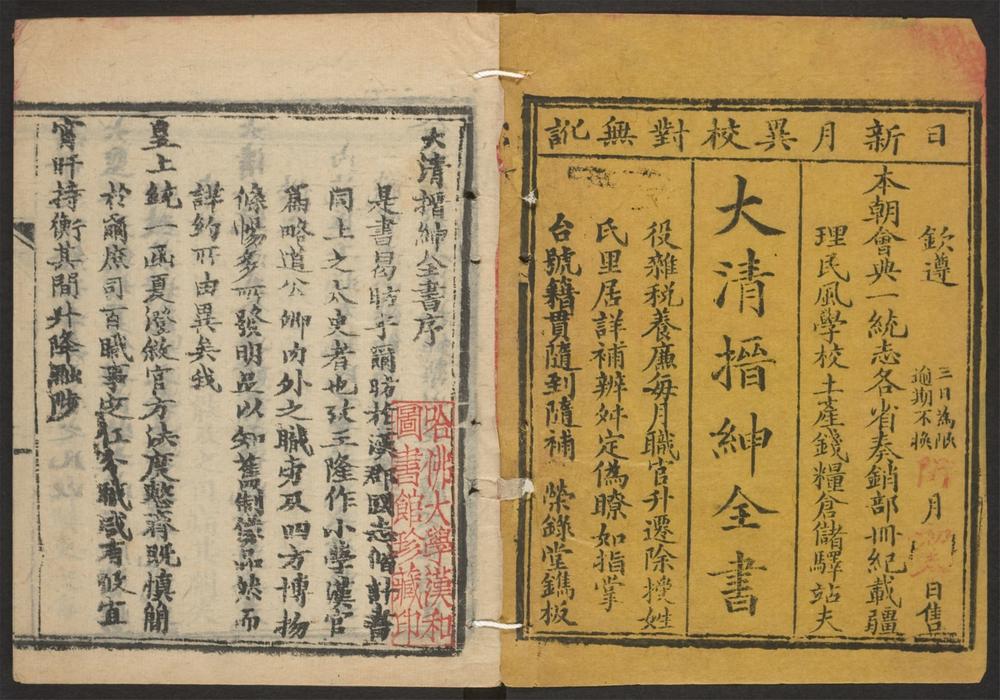 日新月異校對無訛
欽遵
三日為限
逾期不換
月
日售
本朝會典一統志各省奉銷部冊紀載疆
理民風學校土產錢糧倉儲驛站夫
大清搢紳全書
役雜稅養廉每月職官升遷除授姓
氏里居詳補辨舛定偽瞭如指掌
台號籍貫隨到隨補 榮錄堂鐫板
大清搢紳全書序
是書曷昉乎爾昉於漢郡國志偕計書
同上之太史者也攷王隆作小學漢官
篇略道公卿內外之職旁及四方博物
條暢多所發明足以知舊制儀品然而
詳約所由異矣我
皇上統一函夏澄敘官方法度整齊既慎簡
於爾庶司百職事 職咸有攸宜
宵旰持衡其間升降黜陟
哈佛大學漢和
圖書館珍藏印